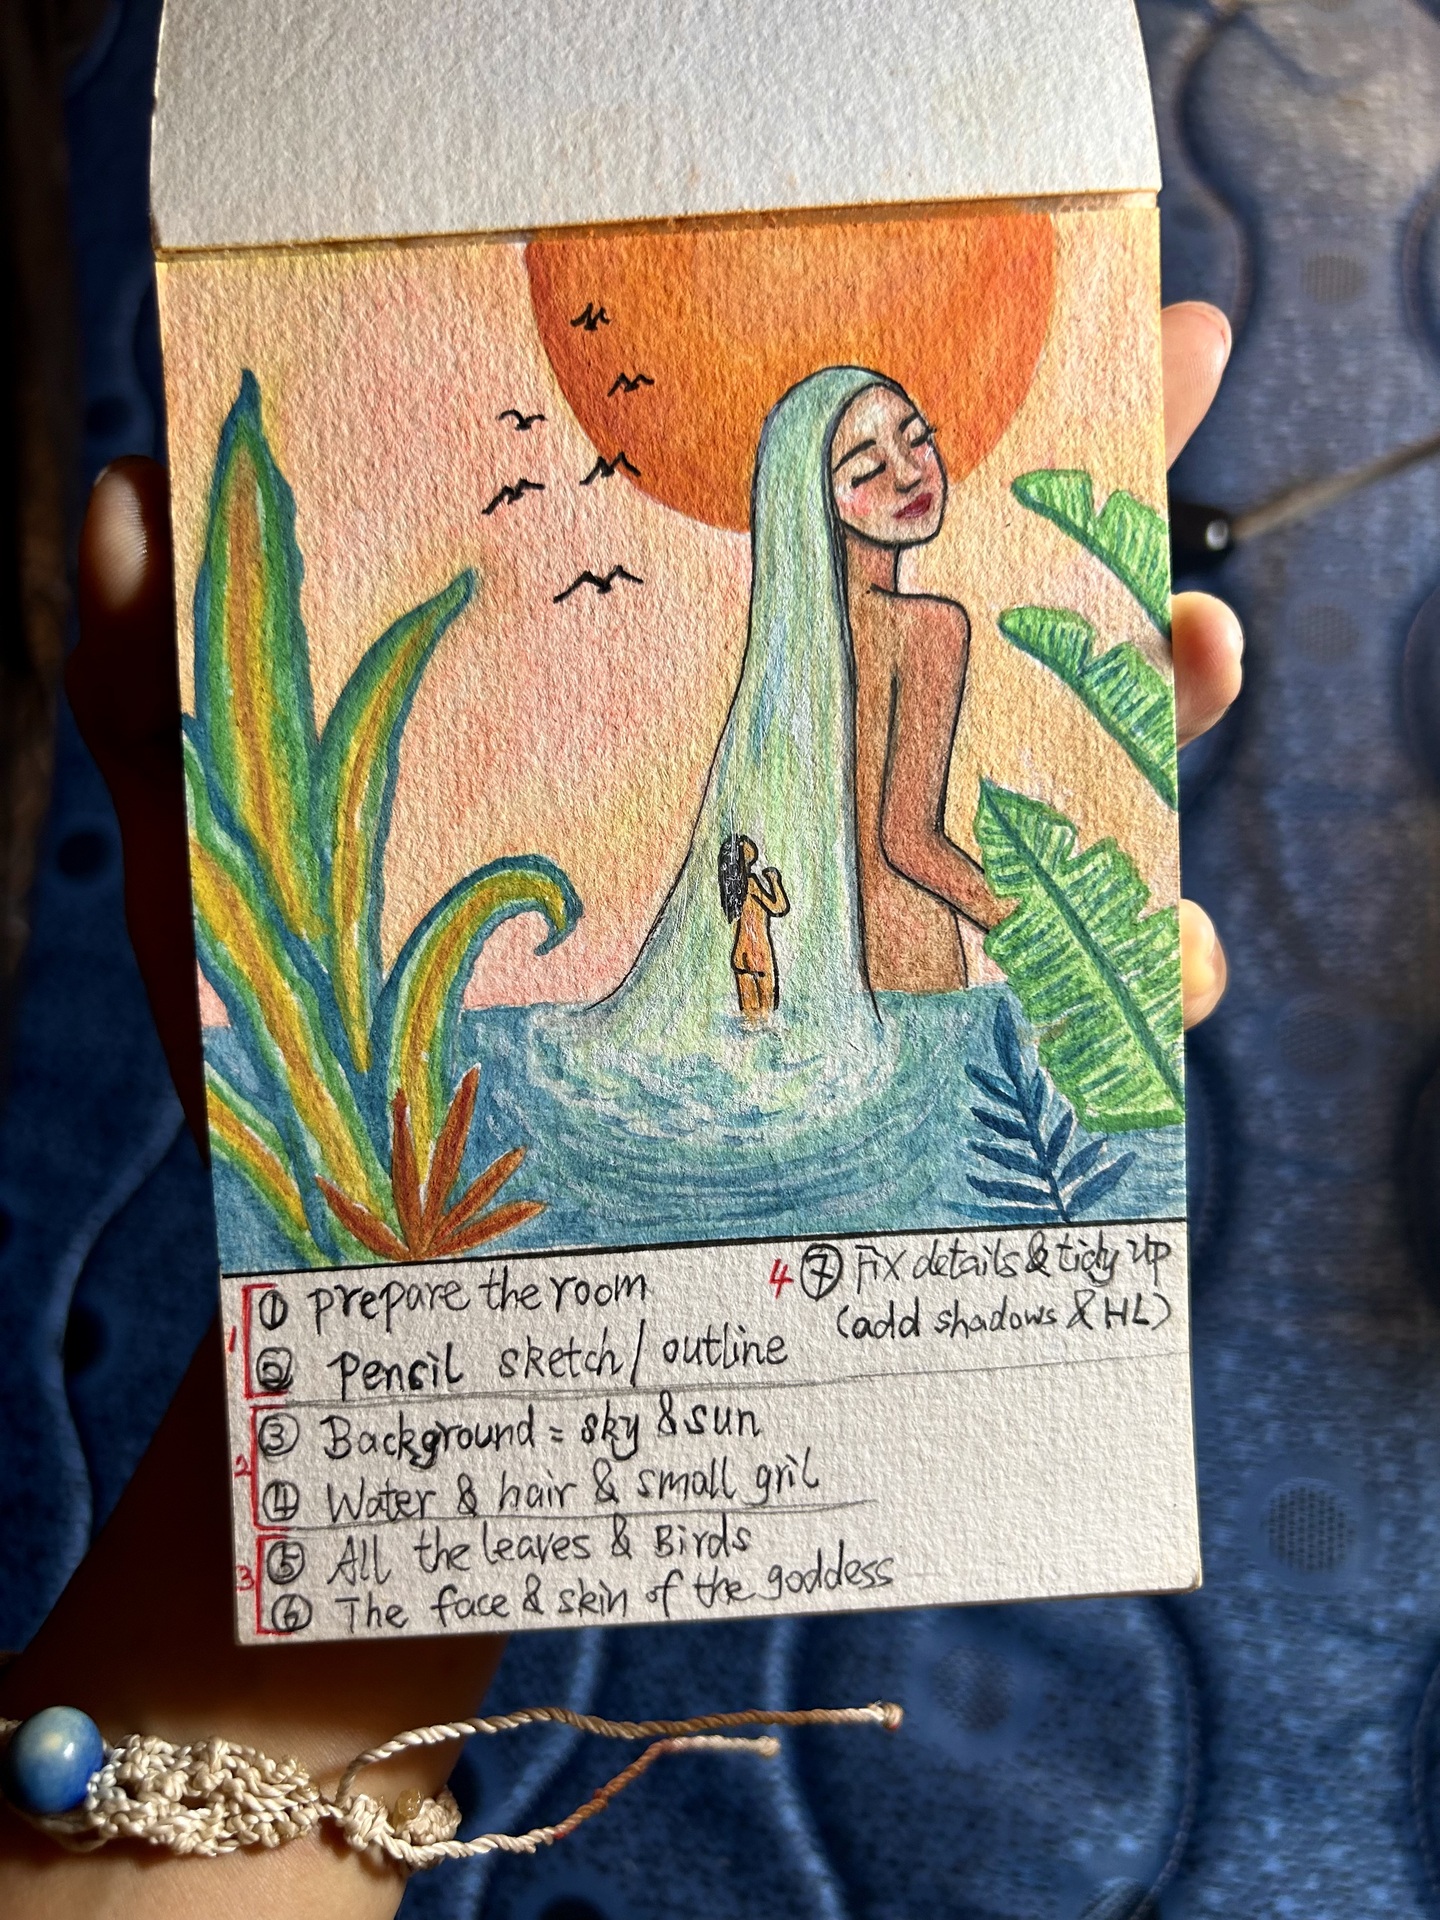 1 ① prepare the room
② Pencil sketch / outline
2 ③ Background = sky & sun
④ Water & hair & small gril
3 ⑤ All the leaves & Birds
⑥ The face & skin of the goddess
4 ⑦ Fix details & tidy up
(add shadows & HL)